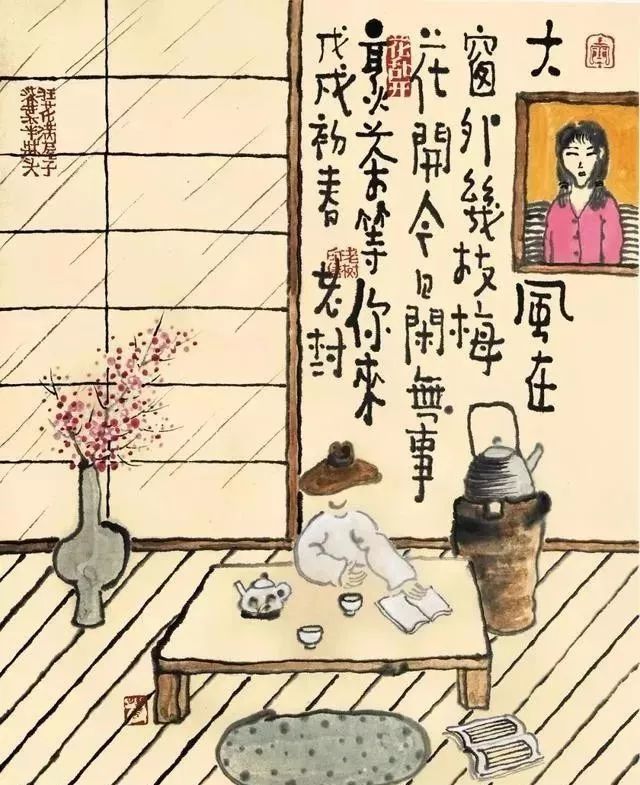 大風在
窗外幾枝梅
花開今日閑無事
煮茶等你來
戊戌初春 老树
花乱开